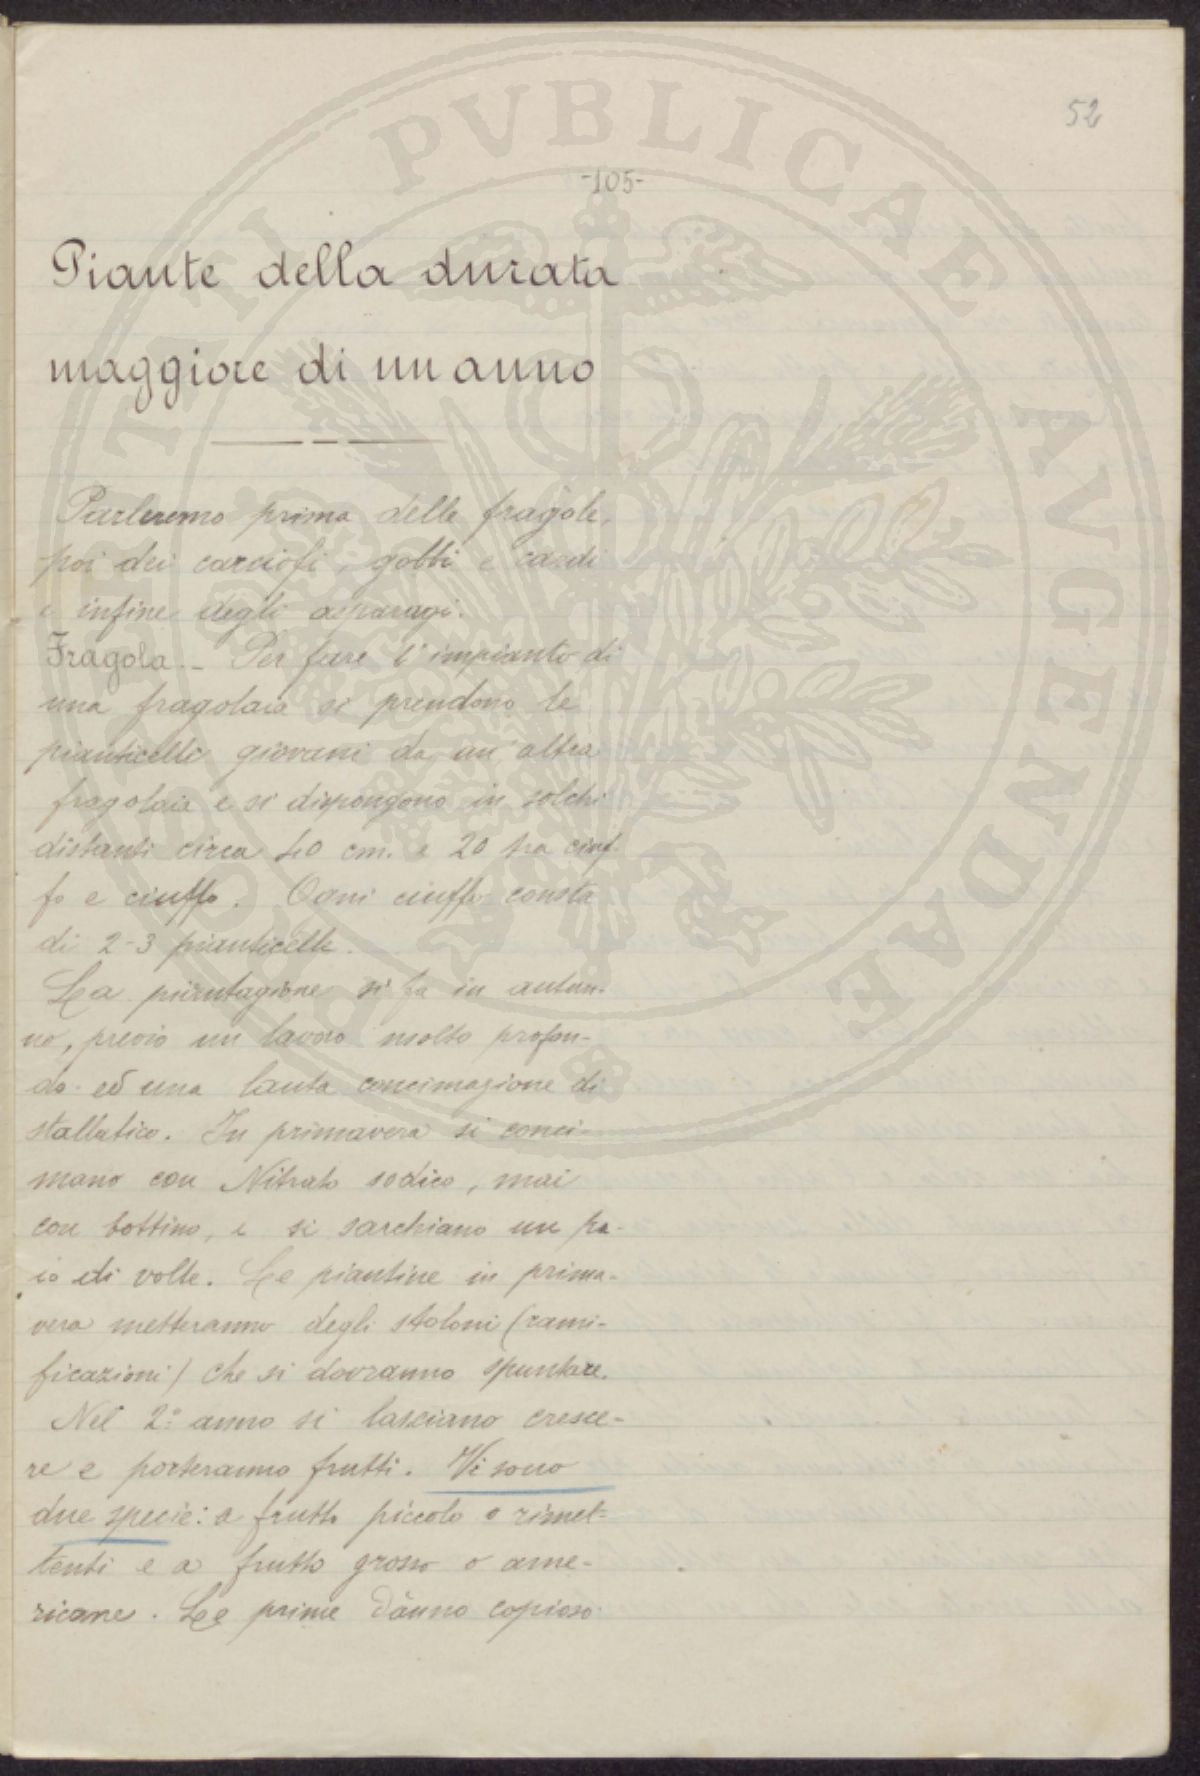 52
-105-
Piante della durata
maggiore di un anno
Parleremo prima delle fragole,
poi dei carciofi, gobbi e cardi
e infine degli asparagi.
Fragola.- Per fare l'impianto di
una fragolaia si prendono le
pianticelle giovani da un'altra
fragolaia e si dispongono in solchi
distanti circa 40 cm. e 20 tra ciuf-
fo e ciuffo. Ogni ciuffo consta
di 2-3 pianticelle.
La piantagione si fa in autun-
no, previo un lavoro molto profon-
do ed una lauta concimazione di
stallatico. In primavera si conci-
mano con Nitrato sodico, mai
con bottino, e si sarchiano un pa-
io di volte. Le piantine in prima-
vera metteranno degli stoloni (rami-
ficazioni) che si dovranno spuntare.
Nel 2º anno si lasciano cresce-
re e porteranno frutti. Vi sono
due specie: a frutto piccolo o rimet-
tenti e a frutto grosso o ame-
ricane. Le prime dànno copioso
PUBLICAE AVGENDAE